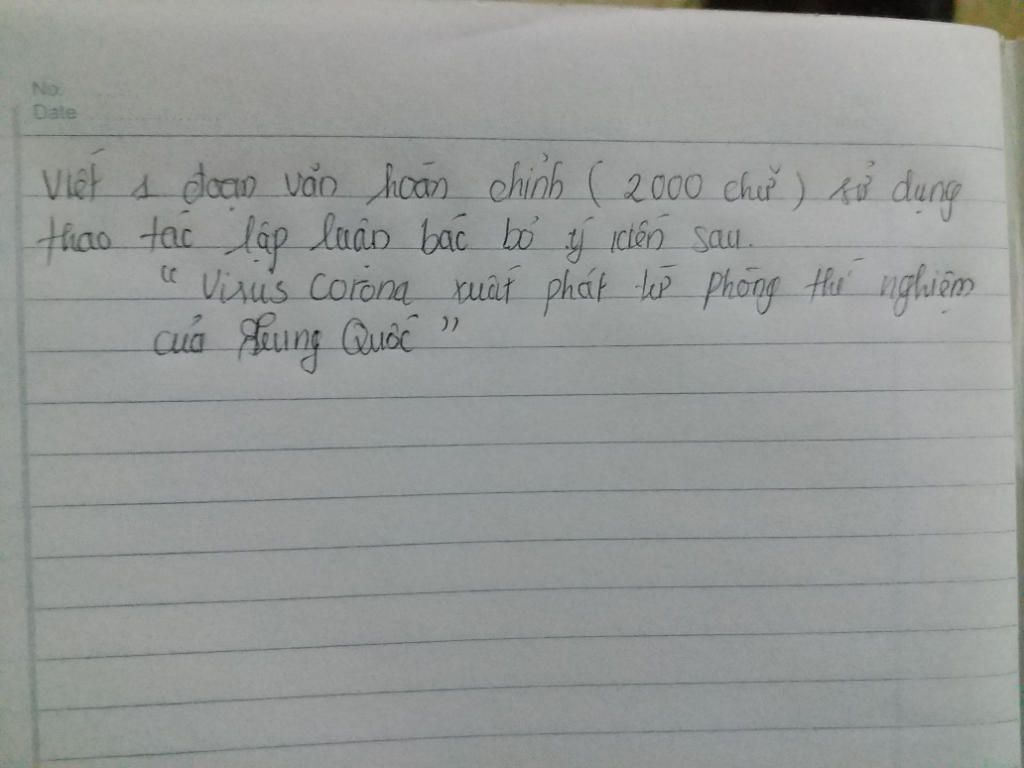 No.
Date
Viết 1 đoạn văn hoàn chỉnh ( 2000 chữ ) sử dụng
thao tác lập luận bác bỏ ý kiến sau.
" Virus corona xuất phát từ phòng thí nghiệm
của Trung Quốc "